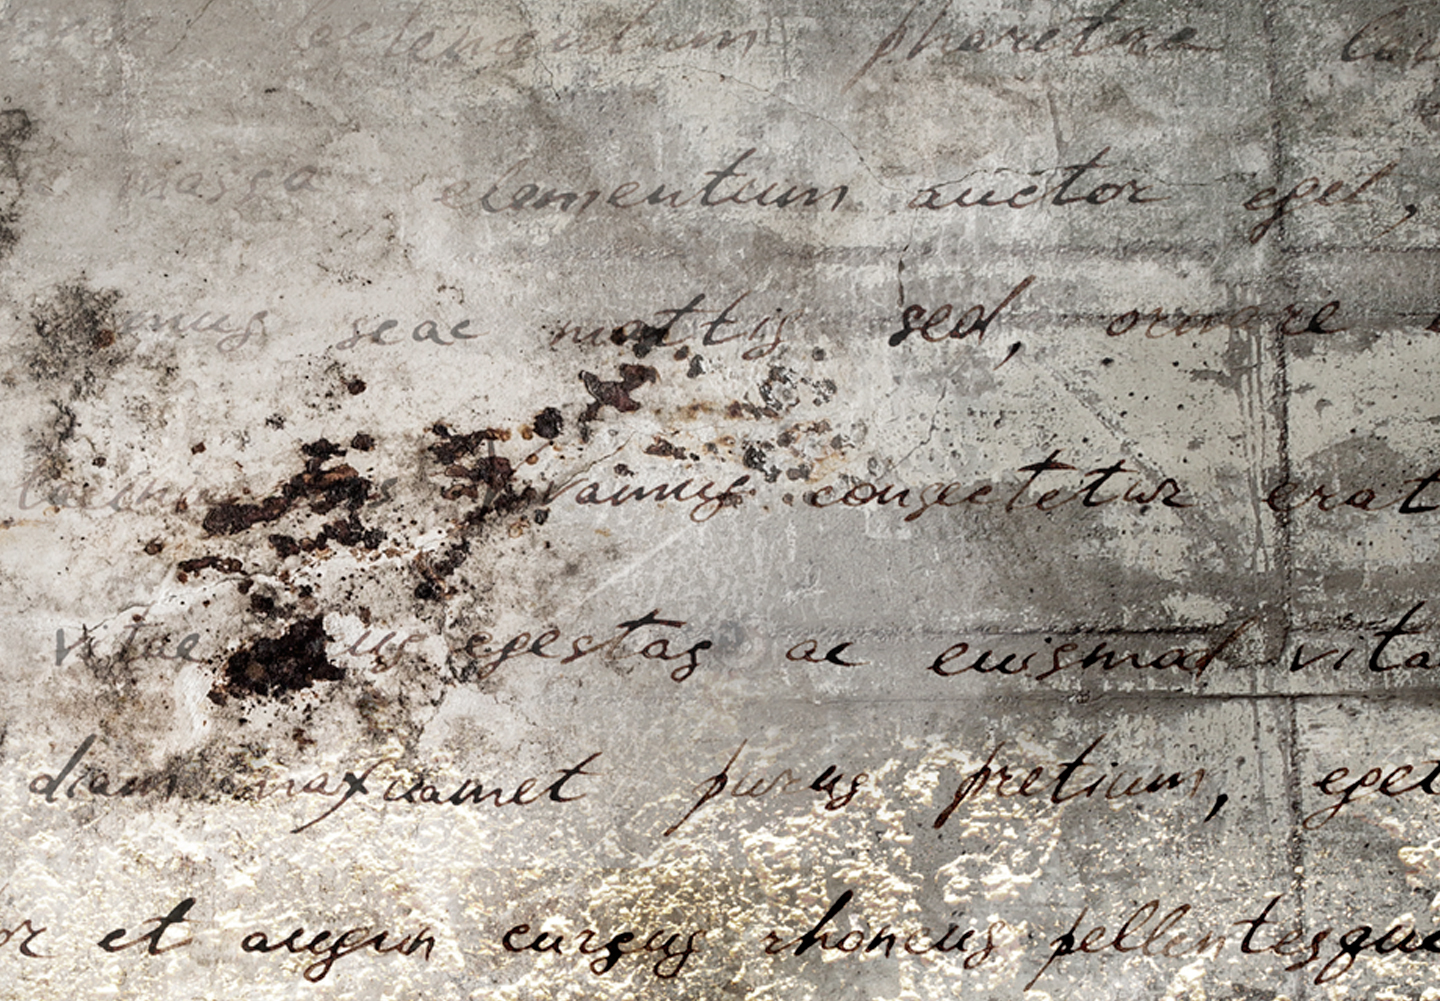 elementum pharetra
massa elementum auctor eget,
seac mattis sed, ornare
vamus consectetur erat
vitae egestas ac euismad vita
diam amet purus pretium, eget
et augun cursus rhoncus pellentesque